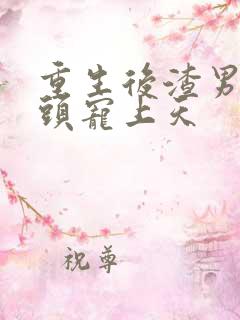 重生後渣男
頭寵上天
祝尊